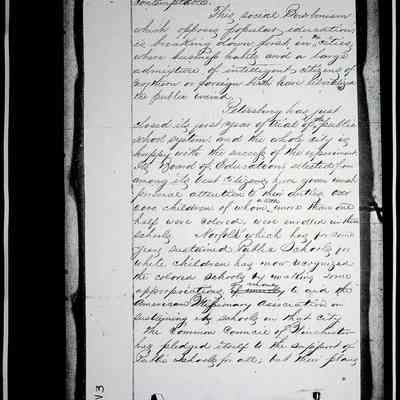 contemptible.
This social Bourbonism
which opposes popular education
is breaking down first, in the cities
where business habits and a large
admixture of intelligent citizens of
northern or foreign birth have liberalized
the public mind.
Petersburg has just
closed its first year of trial of the public
school system and the whole city is
happy with the success of the experiment
Its Board of Education selected from
among its best citizens have given much
personal attention to their duties
children of whom more than one
half were colored were enrolled in these
schools. Norfolk which has for some
years sustained Public Schools for
white children has now recognized
the colored schools by making some
appropriations of money to aid the
American Missionary Association in
sustaining its schools in that city
The Common Council of Winchester
has pledged itself to the support of
Public schools for all; but their plans
V3